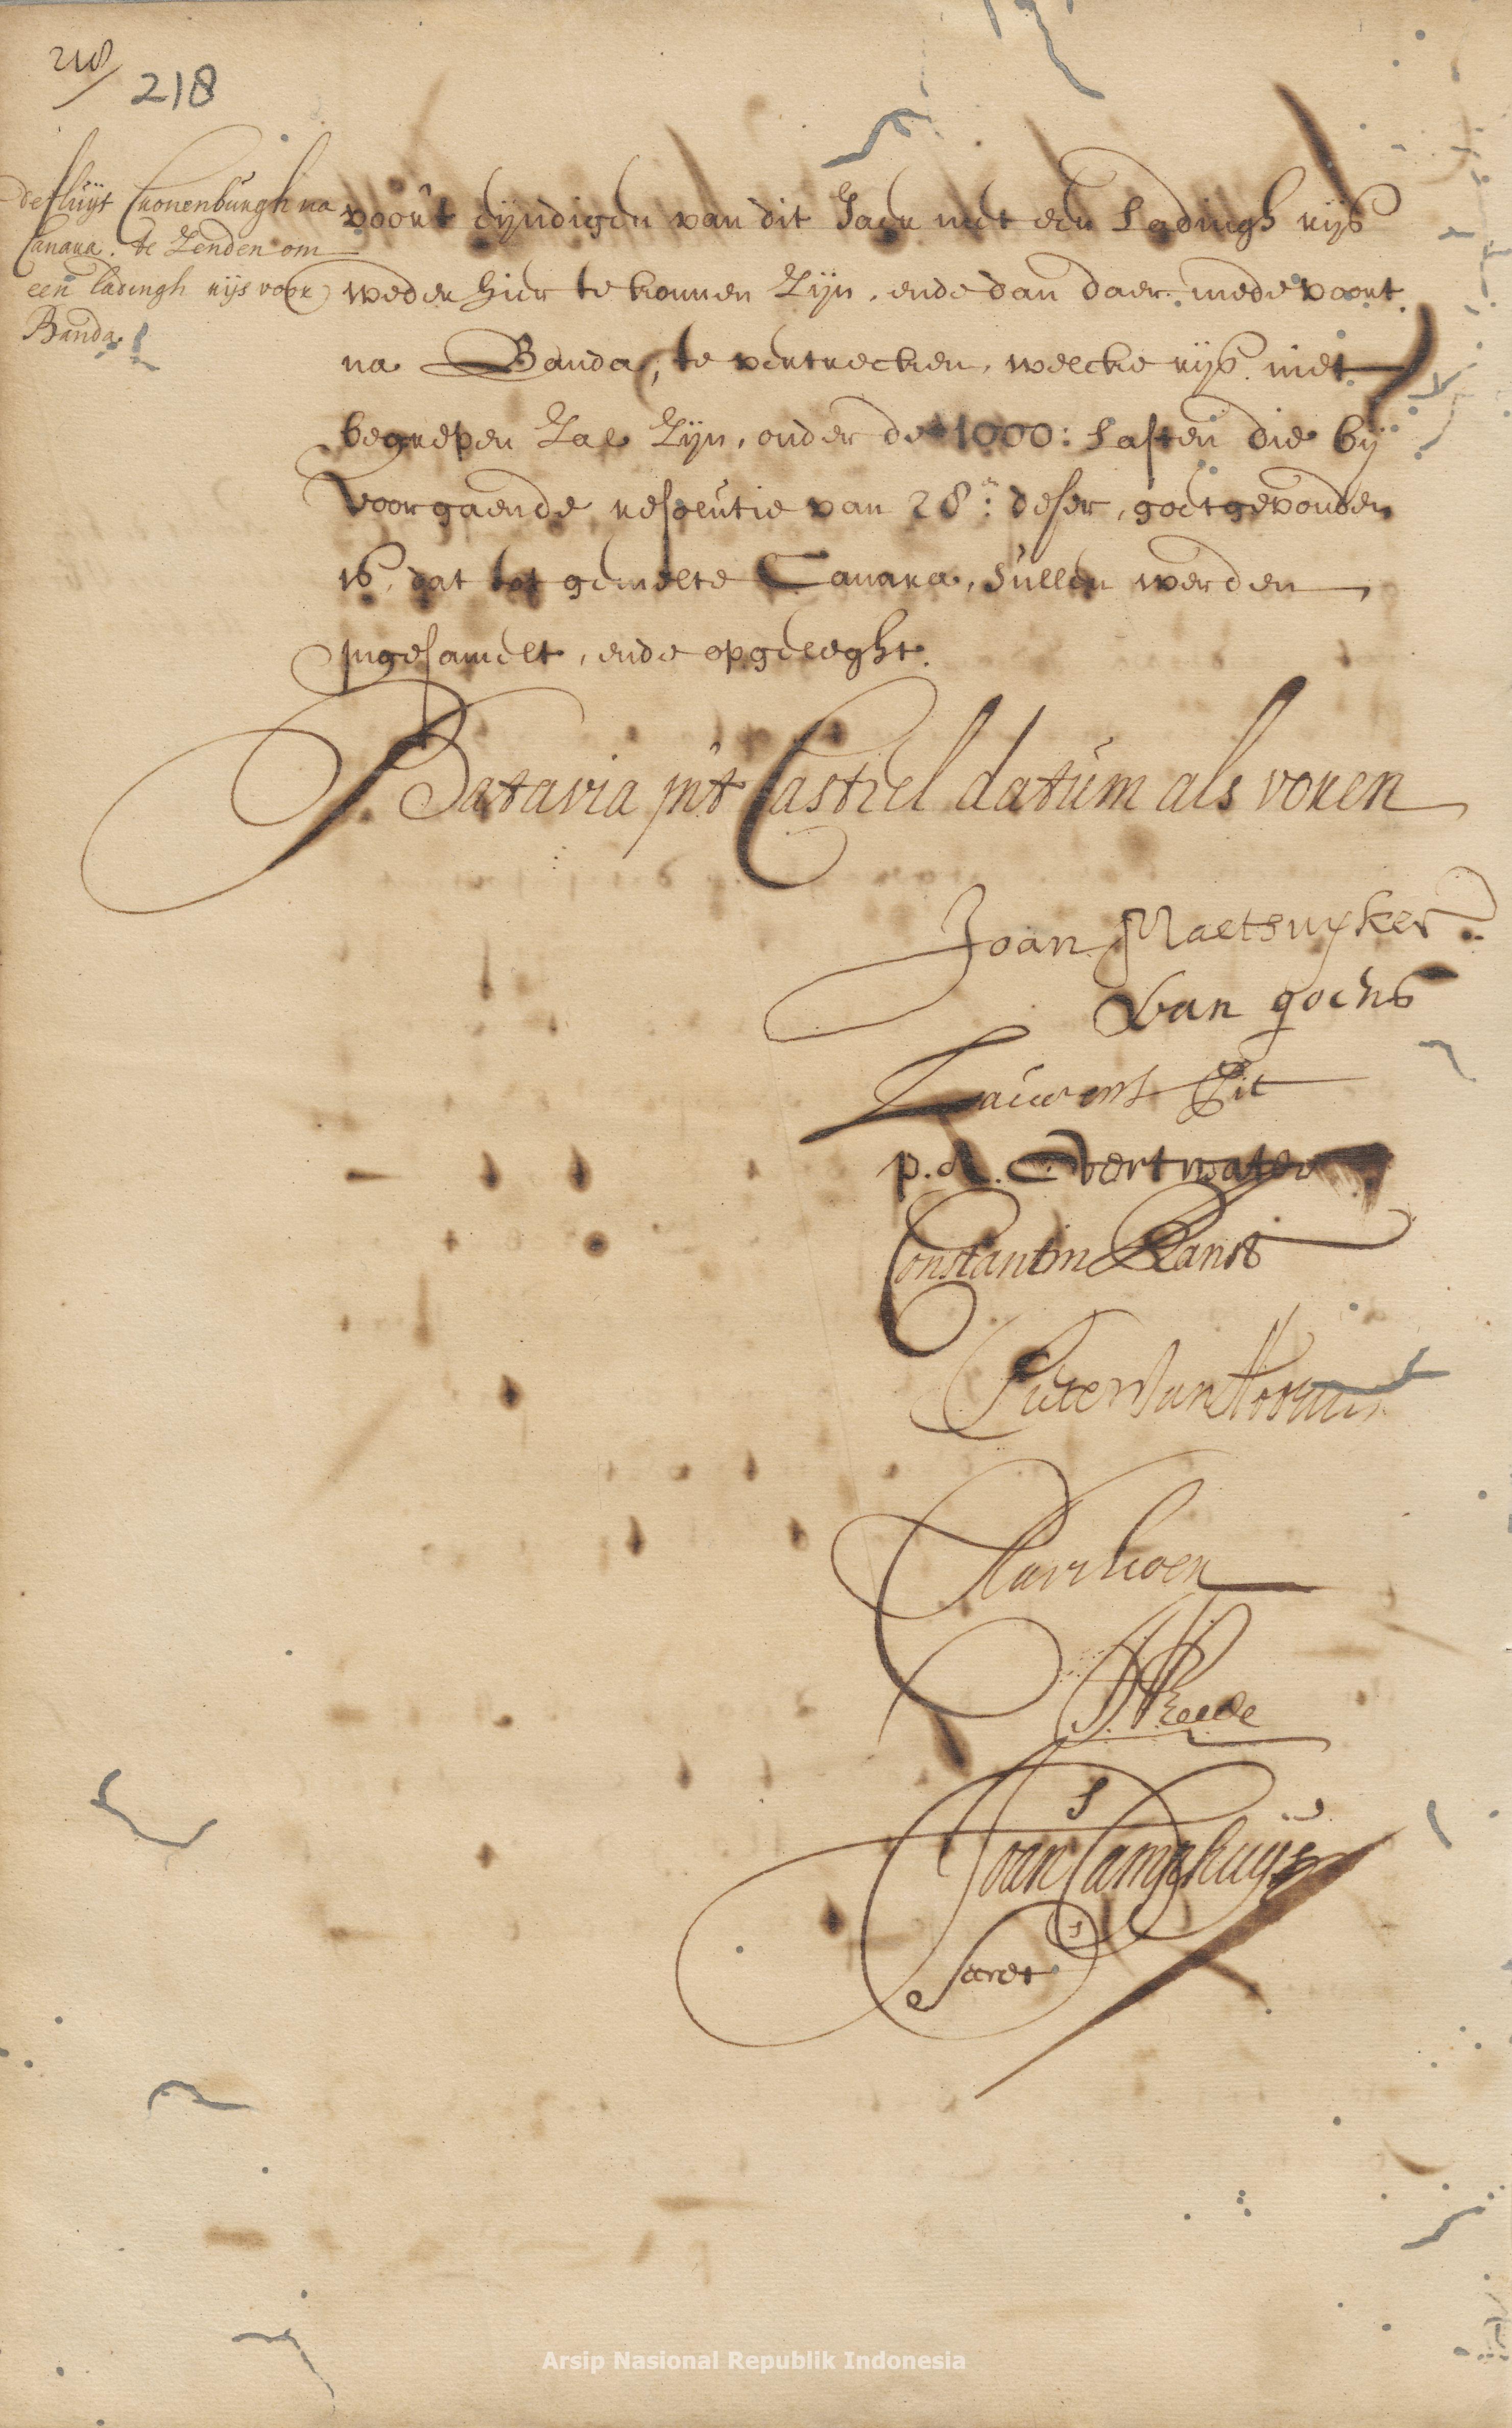 218
218
de fluyt Cronenburgh na
Canara te zenden om
een ladingh rijs voor
Banda.
voor't eyndigen van dit Jaer met een Ladingh rijs
weder hier te konnen zijn, ende dan daer mede voort
na Banda, te vertrecken, welcke rijs niet
begrepen zal zijn, onder de 1000: Lasten die bij
voorgaende resolutie van 28:n deser, goetgevonden
is, dat tot gemelte Canara, sullen werden
jngesamelt, ende opgeleght.
Batavia jnt Casteel datum als voren
Joan Maetsuyker
Van goens
Laurens Pit
p. A. Overtwater
Constantin Ranst
Pieter Van Hoorn
Joan Camphuijs
Secret
Arsip Nasional Republik Indonesia